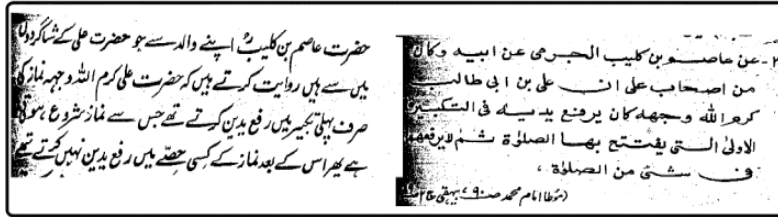 ۲- عن عاصم بن كليب الجرمى عن ابيه وكان
من اصحاب على ان على بن ابى طالب
كرم الله وجهه كان يرفع يديه فى التكبيرة
الاولى التى يفتتح بها الصلوٰة ثم لا يرفعهما
فى شئ من الصلوٰة ،
(مؤطا امام محمد صـ۹۰، بيهقى ج۲
حضرت عاصم بن کلیبؒ اپنے والد سے جو حضرت علی کے شاگردوں
میں سے ہیں روایت کرتے ہیں کہ حضرت علی کرم اللہ وجہہ نماز کی
صرف پہلی تکبیر میں رفع یدین کرتے تھے جس سے نماز شروع ہوتی
ہے پھر اس کے بعد نماز کے کسی حصے میں رفع یدین نہیں کرتے تھے